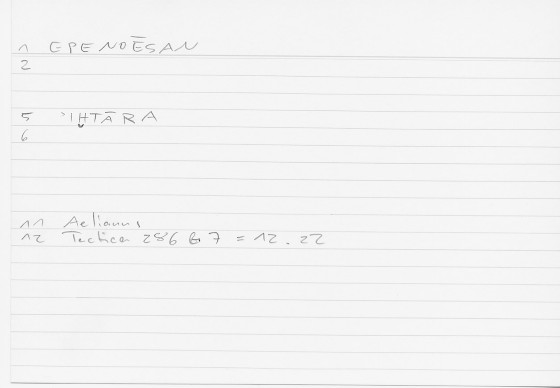 1 EPENOĒSAN
2
5 ʿIḪTĀRA
6
11 Aelianus
12 Tactica 286 G 7 = 12.22